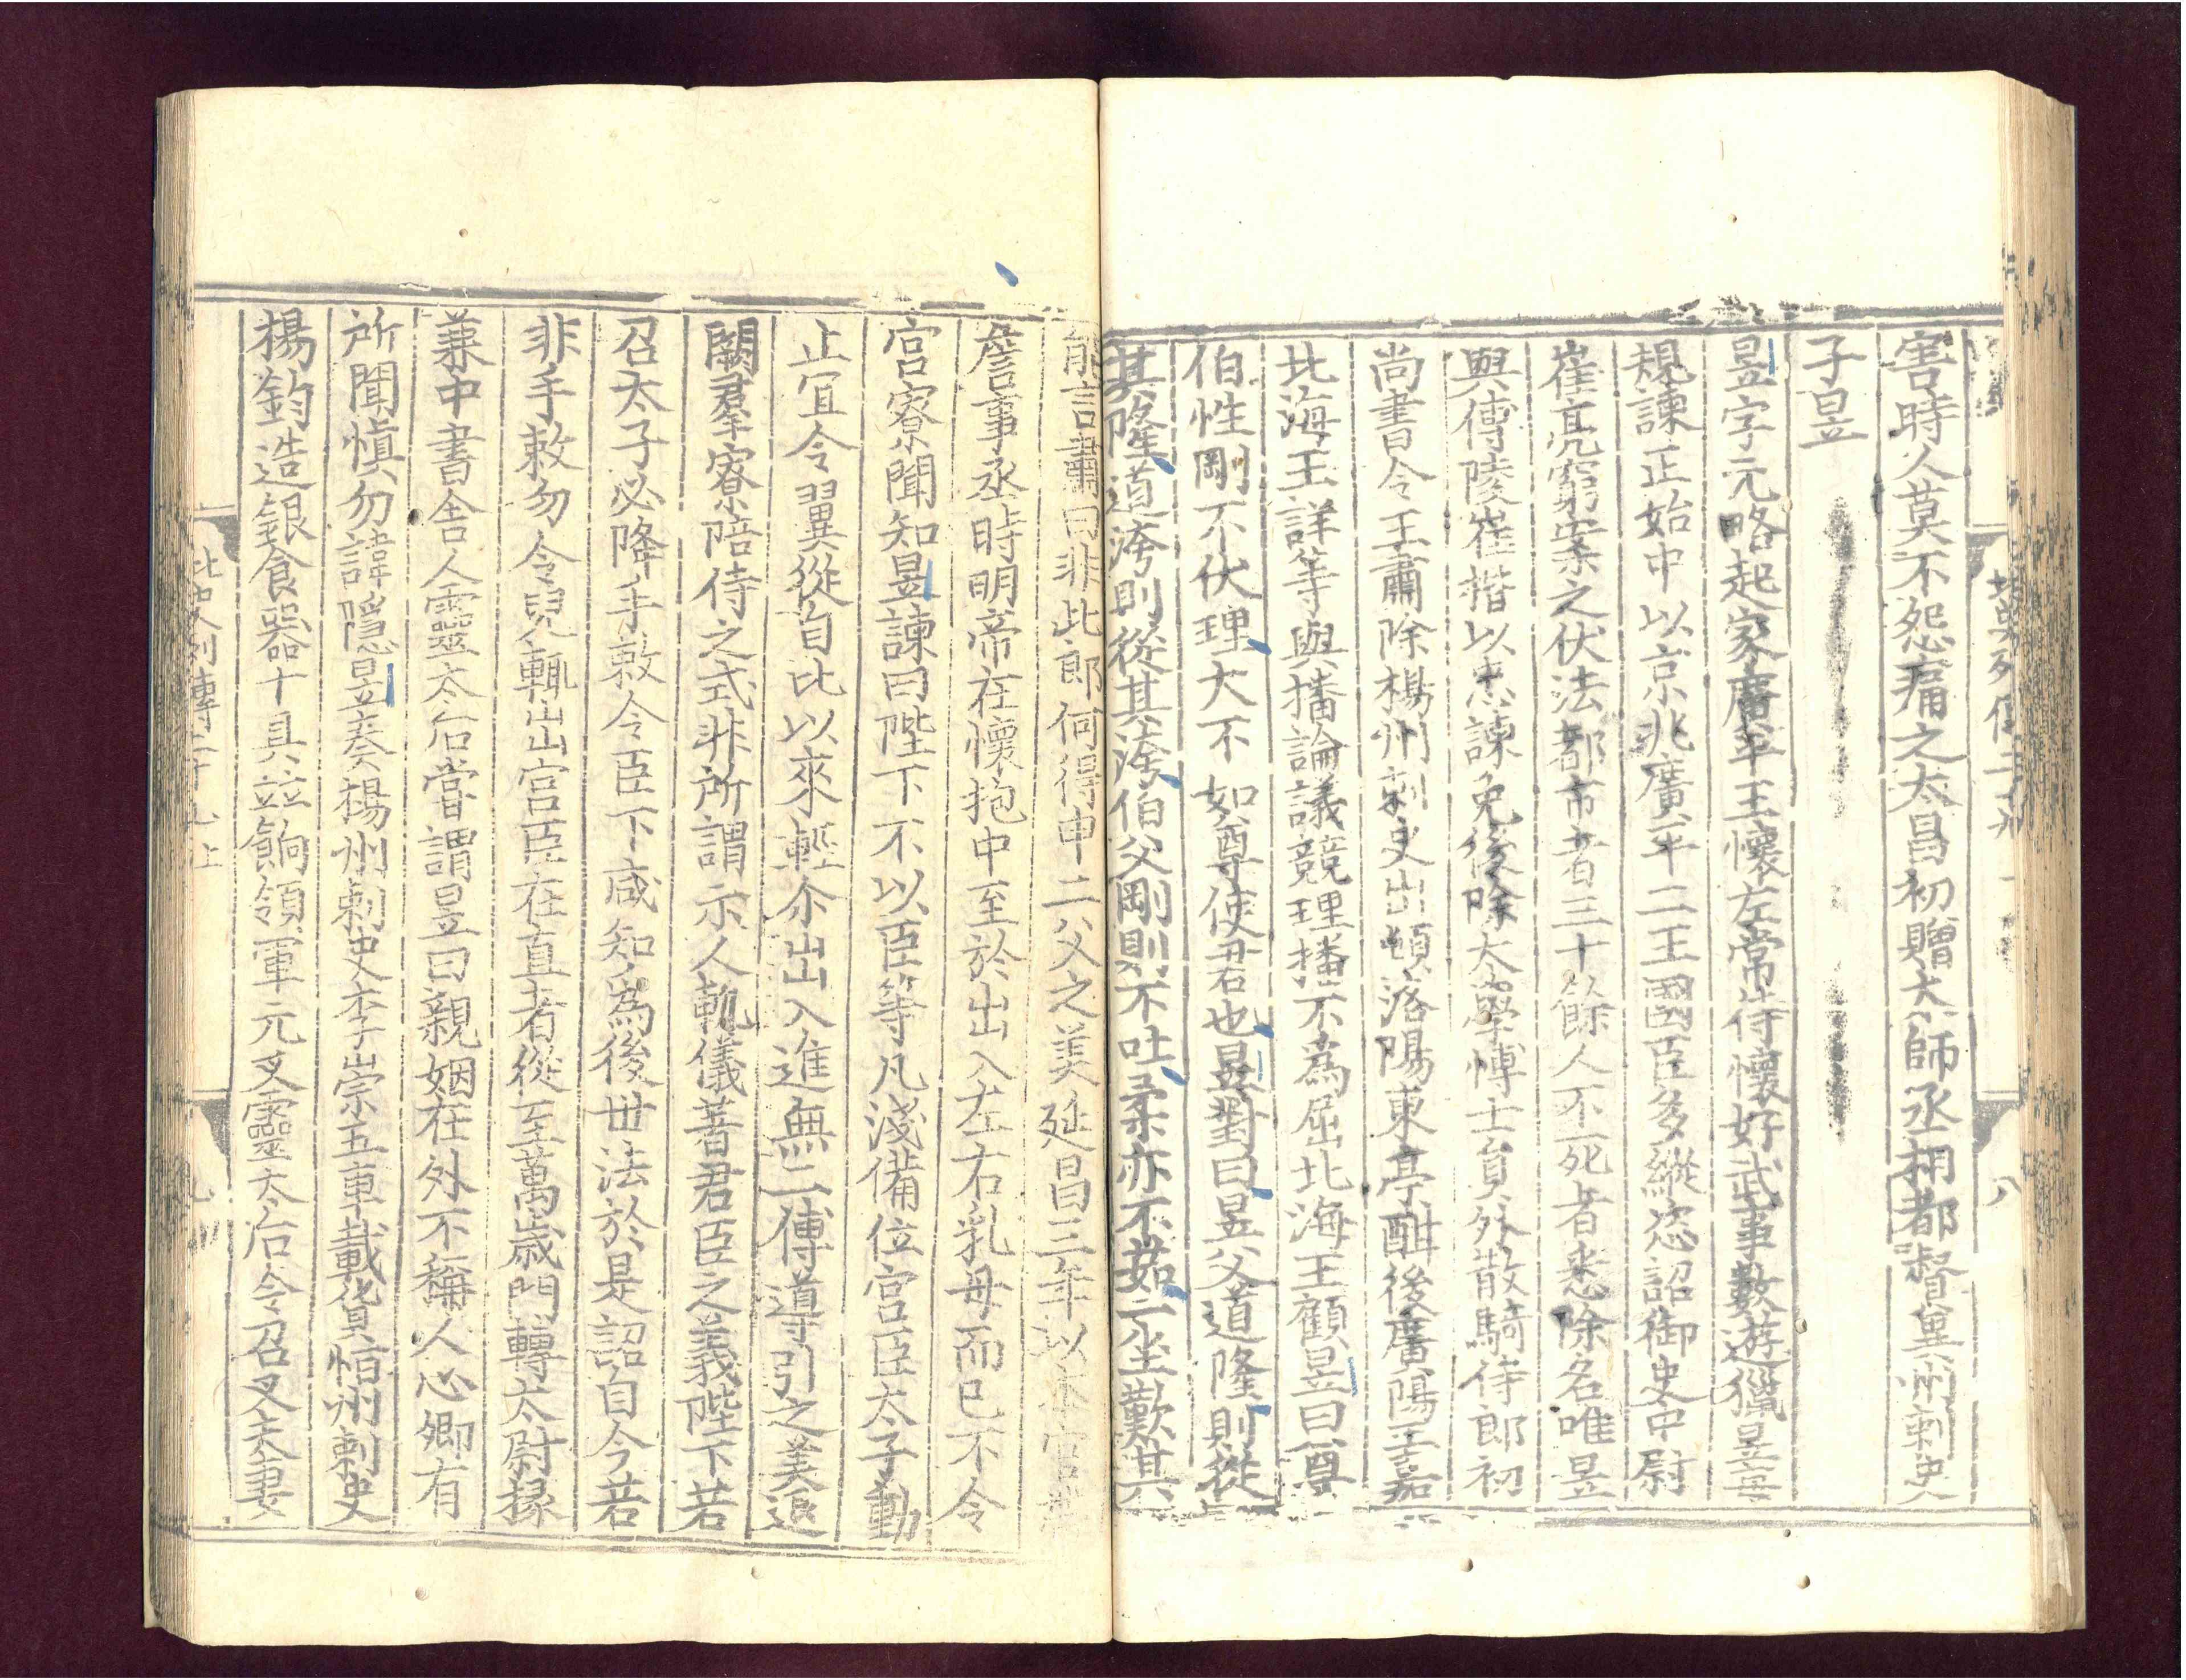 北史列傳二十九上
八
害時人莫不怨痛之太昌初贈太師丞相都督冀州刺史
子昱
昱字元略起家廣平王懷左常侍懷好武事數遊獵昱每
規諫正始中以京兆廣平二王國臣多縱恣詔御史中尉
崔亮窮案之伏法都市者三十餘人不死者悉除名唯昱
與傅陵崔楷以忠諫免後除太學博士貟外散騎侍郎初
尚書令王肅除楊州刺史出頓洛陽東亭酣後廣陽王嘉
北海王詳等與播論議競理播不為屈北海王顧昱曰尊
伯性剛不伏理大不如尊使君也昱對曰昱父道隆則從
其隆道洿則從其洿伯父剛則不吐柔亦不茹一坐歎其
能言肅曰非此郎何得申二父之美延昌三年以本官帶
詹事丞時明帝在懷抱中至於出入左右乳母而已不令
宮寮聞知昱諫曰陛下不以臣等凡淺備位宮臣太子動
止宜令翼從自比以來輕尒出入進無二傅導引之美退
闕羣寮陪侍之式非所謂示人軌儀著君臣之義陛下若
召太子必降手敕令臣下咸知為後世法於是詔自今若
非手敕勿令兒輒出宮臣在直者從至萬歲門轉太尉掾
兼中書舍人靈太后嘗謂昱曰親姻在外不稱人心卿有
所聞慎勿諱隱昱奏楊州刺史李崇五車載貨恒州刺史
楊鈞造銀食器十具並餉領軍元叉靈太后令召叉夫妻
北史列傳二十九上
九